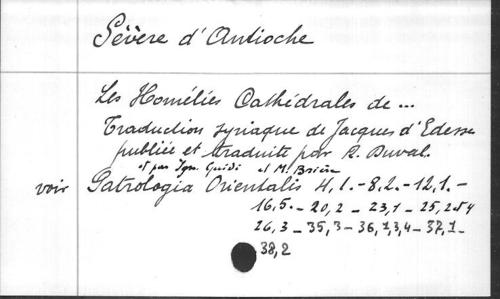 Sévère d'Antioche
Les Homélies Cathédrales de ...
Traduction syriaque de Jacques d'Edesse
publiée et traduite par R. Duval.
et par Ign. Guidi et M. Brière
voir Patrologia Orientalis 4,1.-8,2.-12,1.-
16,5.-20,2-23,1-25,
26,3-35,3-36,1,3,4-37,1-
38,2